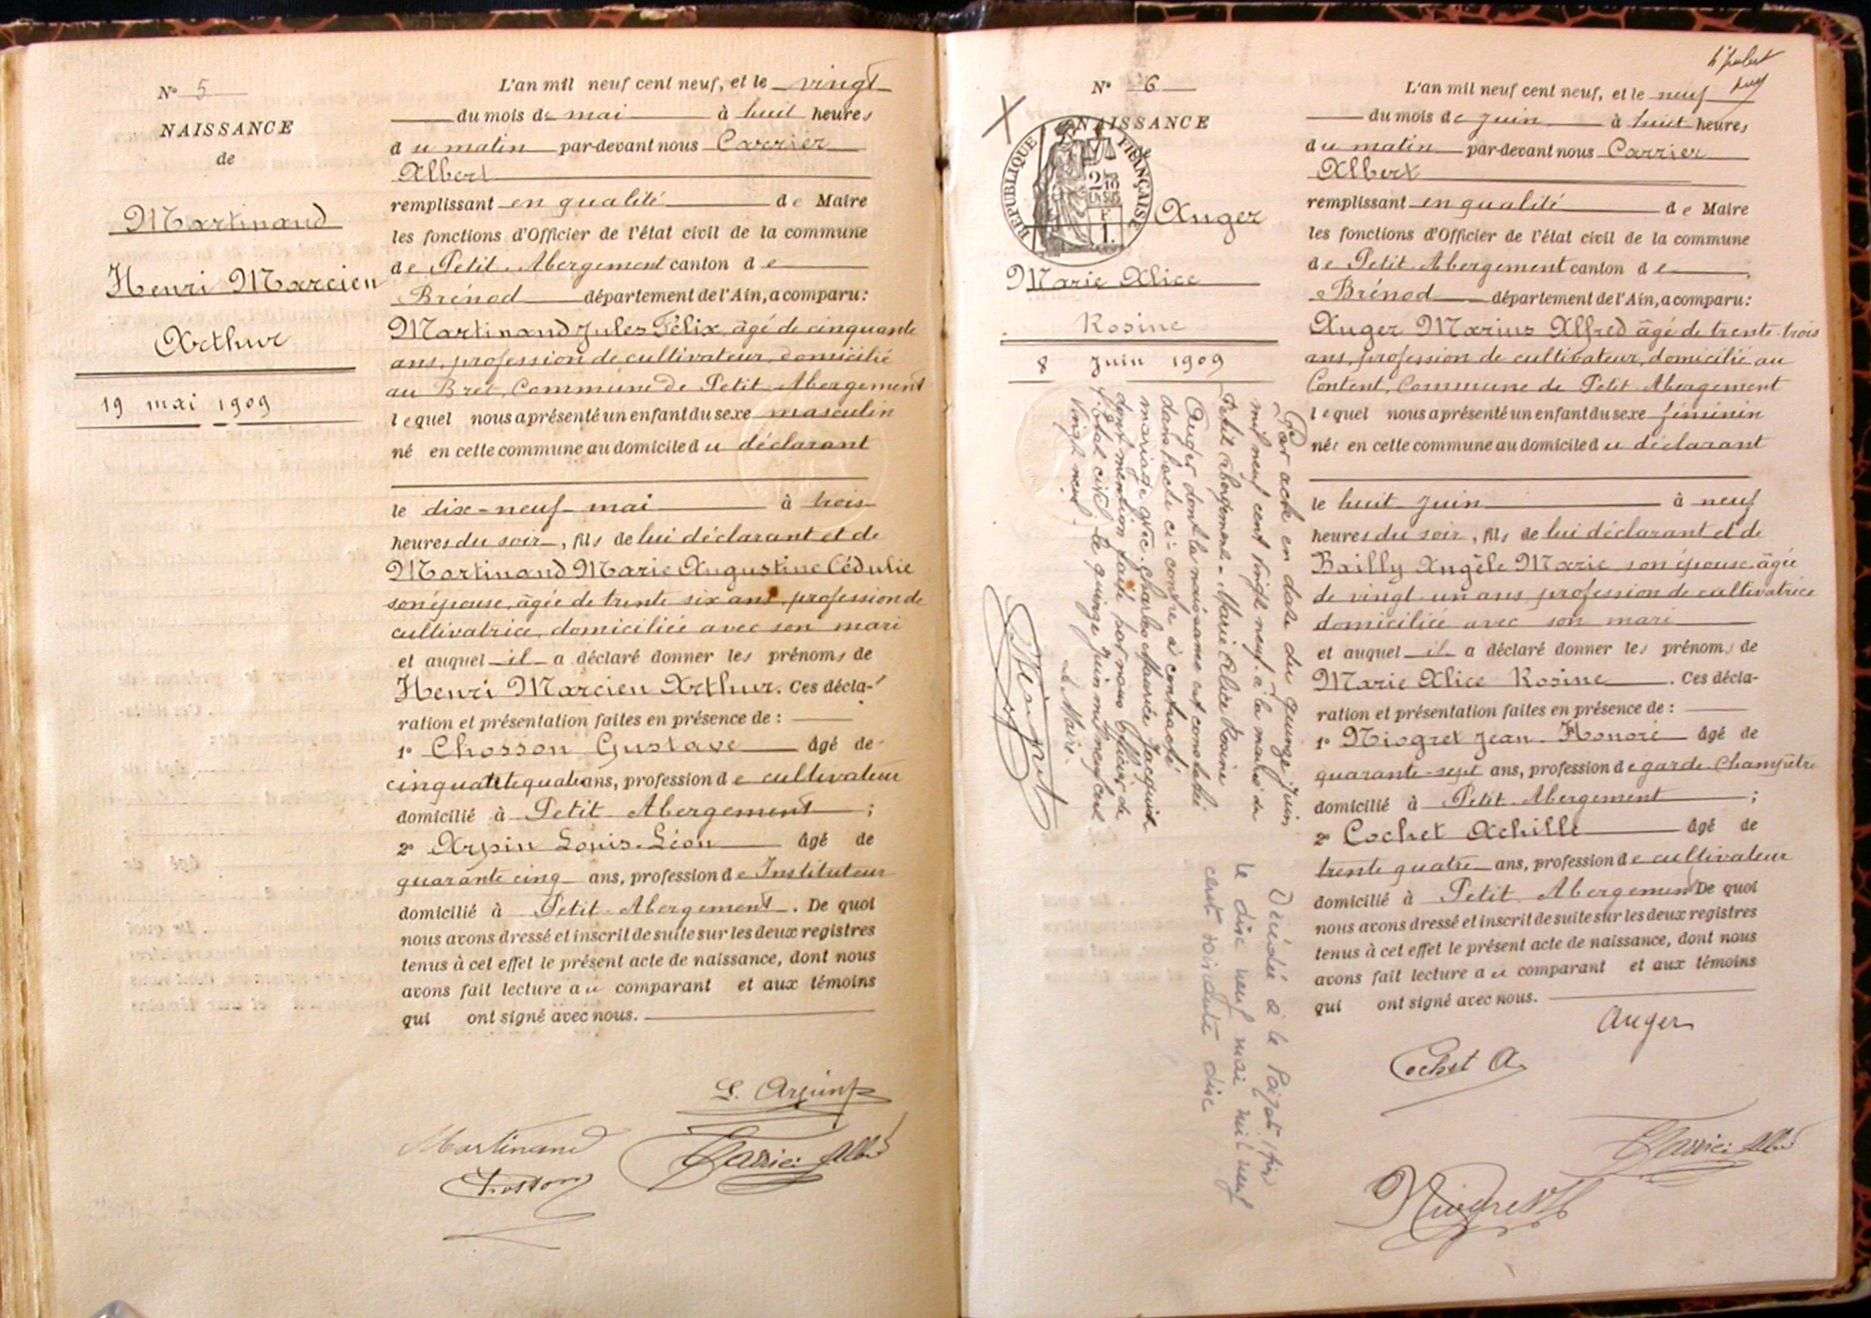 N° 5
NAISSANCE
de
Martinand
Henri Marcien
Arthur
19 mai 1909
L'an mil neuf cent neuf, et le vingt
du mois de mai à huit heures
du matin par-devant nous Carrier
Albert
remplissant en qualité de Maire
les fonctions d'Officier de l'état civil de la commune
de Petit-Abergement canton de
Brénod département de l'Ain, a comparu:
Martinand Jules Félix, âgé de cinquante
ans, profession de cultivateur, domicilié
au Bret, Commune de Petit-Abergement
lequel nous a présenté un enfant du sexe masculin
né en cette commune au domicile du déclarant
le dix-neuf mai à trois
heures du soir, fils de lui déclarant et de
Martinand Marie Augustine Cédulie
son épouse, âgée de trente six ans, profession de
cultivatrice, domiciliée avec son mari
et auquel il a déclaré donner les prénoms de
Henri Marcien Arthur. Ces décla-
ration et présentation faites en présence de :
1° Chosson Gustave âgé de
cinquante quatre ans, profession de cultivateur
domicilié à Petit Abergement ;
2° Arpin Louis-Léon âgé de
quarante cinq ans, profession de Instituteur
domicilié à Petit-Abergement. De quoi
nous avons dressé et inscrit de suite sur les deux registres
tenus à cet effet le présent acte de naissance, dont nous
avons fait lecture au comparant et aux témoins
qui ont signé avec nous.
L. Arpin
Martinand
Carrier Albert
Chosson
N° 6
NAISSANCE
de
RÉPUBLIQUE FRANÇAISE
Auger
Marie Alice
Rosine
8 Juin 1909
Par acte en date du quinze juin
mil neuf cent vingt neuf, à la mairie du
Petit Abergement - Marie Alice Rosine
Auger dont la naissance est constatée
dans l'acte ci-contre a contracté
mariage avec Charles Maurice Jacquind
dont mention faite par nous Officier de
l'Etat civil le quinze juin mil neuf cent
vingt neuf.
Le Maire.
Décédée à le
le dix neuf mai mil neuf
cent soixante dix
L'an mil neuf cent neuf, et le neuf
du mois de juin à huit heures
du matin par-devant nous Carrier
Albert
remplissant en qualité de Maire
les fonctions d'Officier de l'état civil de la commune
de Petit-Abergement canton de
Brénod département de l'Ain, a comparu:
Auger Marius Alfred âgé de trente-trois
ans, profession de cultivateur, domicilié au
Content, Commune de Petit-Abergement
lequel nous a présenté un enfant du sexe féminin
née en cette commune au domicile du déclarant
le huit juin à neuf
heures du soir, fils de lui déclarant et de
Bailly Angèle Marie son épouse âgée
de vingt-un ans profession de cultivatrice
domiciliée avec son mari
et auquel il a déclaré donner les prénoms de
Marie Alice Rosine. Ces décla-
ration et présentation faites en présence de :
1° Niogret Jean-Honoré âgé de
quarante-sept ans, profession de garde-Champêtre
domicilié à Petit-Abergement ;
2° Cochet Achille âgé de
trente quatre ans, profession de cultivateur
domicilié à Petit Abergement De quoi
nous avons dressé et inscrit de suite sur les deux registres
tenus à cet effet le présent acte de naissance, dont nous
avons fait lecture au comparant et aux témoins
qui ont signé avec nous.
Auger
Cochet A.
Carrier Albert
Niogret